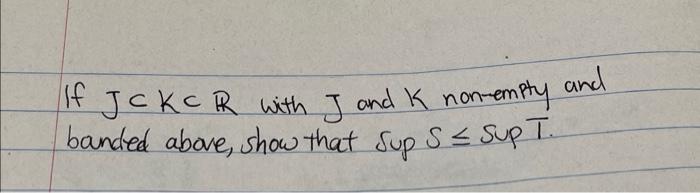 If J ⊂ K ⊂ ℝ with J and K non-empty and
banded above, show that Sup S ≤ Sup T.